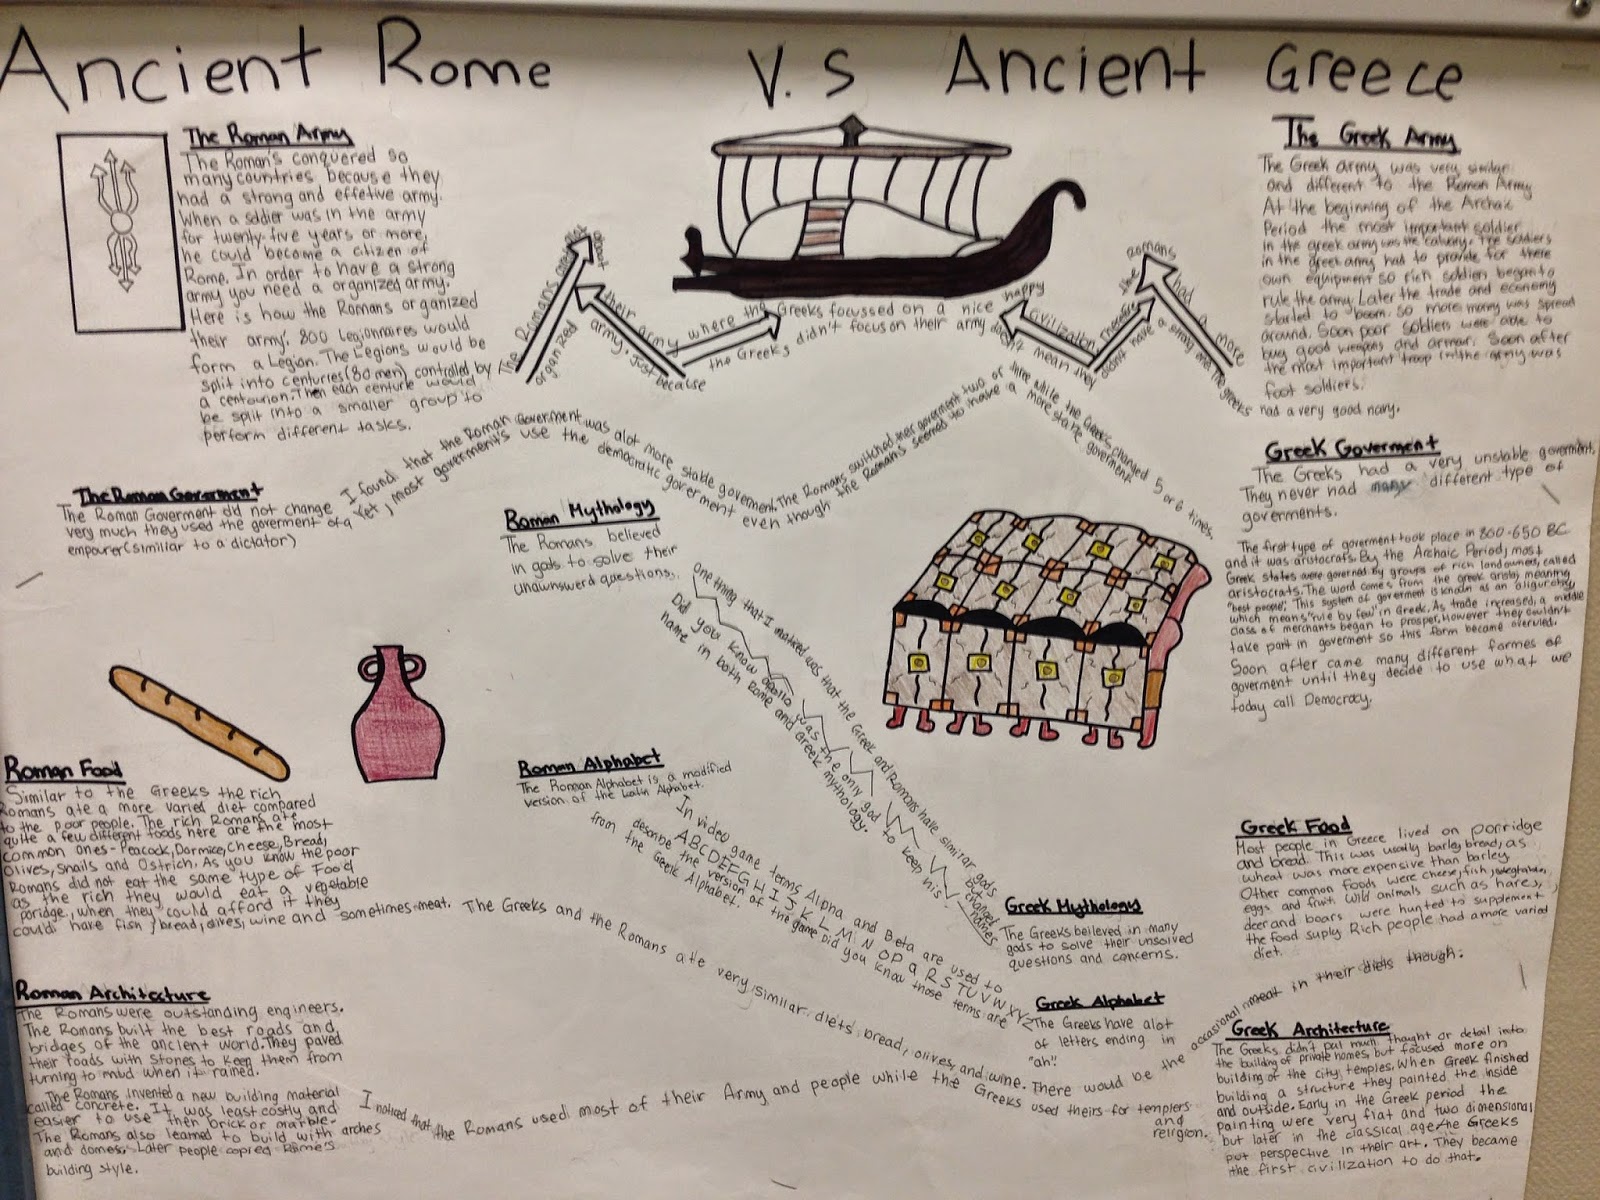 Ancient Rome V.S Ancient Greece
The Roman Army
The Roman's conquered so
many countries because they
had a strong and effetive army.
When a soldier was in the army
for twenty-five years or more,
he could become a citizen of
Rome. In order to have a strong
army you need a organized army.
Here is how the Romans organized
their army: 800 Legionnaires would
form a Legion. The Legions would be
split into centuries (80 men) controlled by
a centourion. Then each centurie would
be split into a smaller group to
perform different tasks.
The Romans
about
organized
their army where the Greeks focussed on a nice happy
army. Just because the Greeks didn't focus on their army don't mean they
civilization. Therefore the Romans had a more
didn't have a strong one. The Greeks
had a very good navy.
The Greek Army
The Greek army was very similar
and different to the Roman Army
At the beginning of the Archaic
Period the most important soldier
in the greek army was the calvary. The soldiers
in the greek army had to provide for there
own equipment so rich soldiers began to
rule the army. Later the trade and economy
started to boom. so more money was spread
around. Soon poor soldiers were able to
buy good weapons and armar. Soon after
the most important troop in the army was
foot soldiers.
The Roman Goverment
The Roman Goverment did not change
very much they used the goverment of a
empourer (similiar to a dictator)
I found that the Roman Goverment was alot more stable goverment. The Romans switched their goverment two or three while the Greeks changed 5 or 6 times.
Yet, most goverment's use the democratic goverment even though the Roman's seemed to have a more stable goverment.
Greek Goverment
The Greeks had a very unstable goverment.
They never had many different type of
goverments.
The first type of goverment took place in 800-650 BC
and it was aristocrats. By the Archaic Period, most
Greek states were governed by groups of rich landowners, called
aristocrats. The word comes from the greek aristoi meaning
"best people". This system of goverment is known as an oligurchy
which means "rule by few" in Greek. As trade increased, a middle
class of merchants began to prosper, However they couldn't
take part in goverment so this form become overuled.
Soon after came many different formes of
goverment until they decide to use what we
today call Democracy.
Roman Mythology
The Romans believed
in gods to solve their
unawnswerd questions.
One thing that I noticed was that the Greek and Romans have similar gods
but changed
names
Did you know apollo was the only god to keep his
name in both Rome and Greek mythology.
Greek Mythology
The Greeks beileved in many
gods to solve their unsolved
questions and concerns.
Roman Food
Similar to the Greeks the rich
Romans ate a more varied diet compared
to the poor people. The rich Romans ate
quite a few different foods here are the most
common ones- Peacock, Dormice, Cheese, Bread,
Olives, Snails and Ostrich. As you know the poor
Romans did not eat the same type of Food
as the rich they would eat a vegetable
poridge, when they could afford it they
could have fish, bread, olives, wine and sometimes meat. The Greeks and the Romans ate very similar diets bread, olives, and wine. There would be the accasional meat in their diets though.
Roman Alphabet
The Roman Alphabet is a modified
version of the Latin Alphabet.
In video game terms Alpha and Beta are used to
ABCDEFGHIJKLMNOPQRSTUVWXYZ
describe the version of the game Did you know those terms are
from the Greek Alphabet.
Greek Alphabet
The Greeks have alot
of letters ending in
"ah".
Greek Food
Most people in Greece lived on porridge
and bread. This was usally barley bread, as
wheat was more expensive than barley.
Other common foods were cheese, fish, vegetables,
eggs and fruit. Wild animals such as hares,
deer and boars were hunted to supplement
the food suply. Rich people had a more varied
diet.
Roman Architecture
The Romans were outstanding engineers.
The Romans built the best roads and
bridges of the ancient world. They paved
their roads with stones to keep them from
turning to mud when it rained.
The Romans invented a new building material
called concrete. It was least costly and
easier to use then brick or marble.
The Romans also learned to build with arches
and domes. Later people copied Rome's
building style.
I noticed that the Romans used most of their Army and people while the Greeks used theirs for templers
and
religion.
Greek Architecture
The Greeks didn't put much thought or detail into
the building of private homes, but focused more on
building of the city temples. When Greek finished
building a structure they painted the inside
and outside. Early in the Greek period the
painting were very flat and two dimensional
but later in the classical age the Greeks
put perspective in their art. They became
the first civilization to do that.